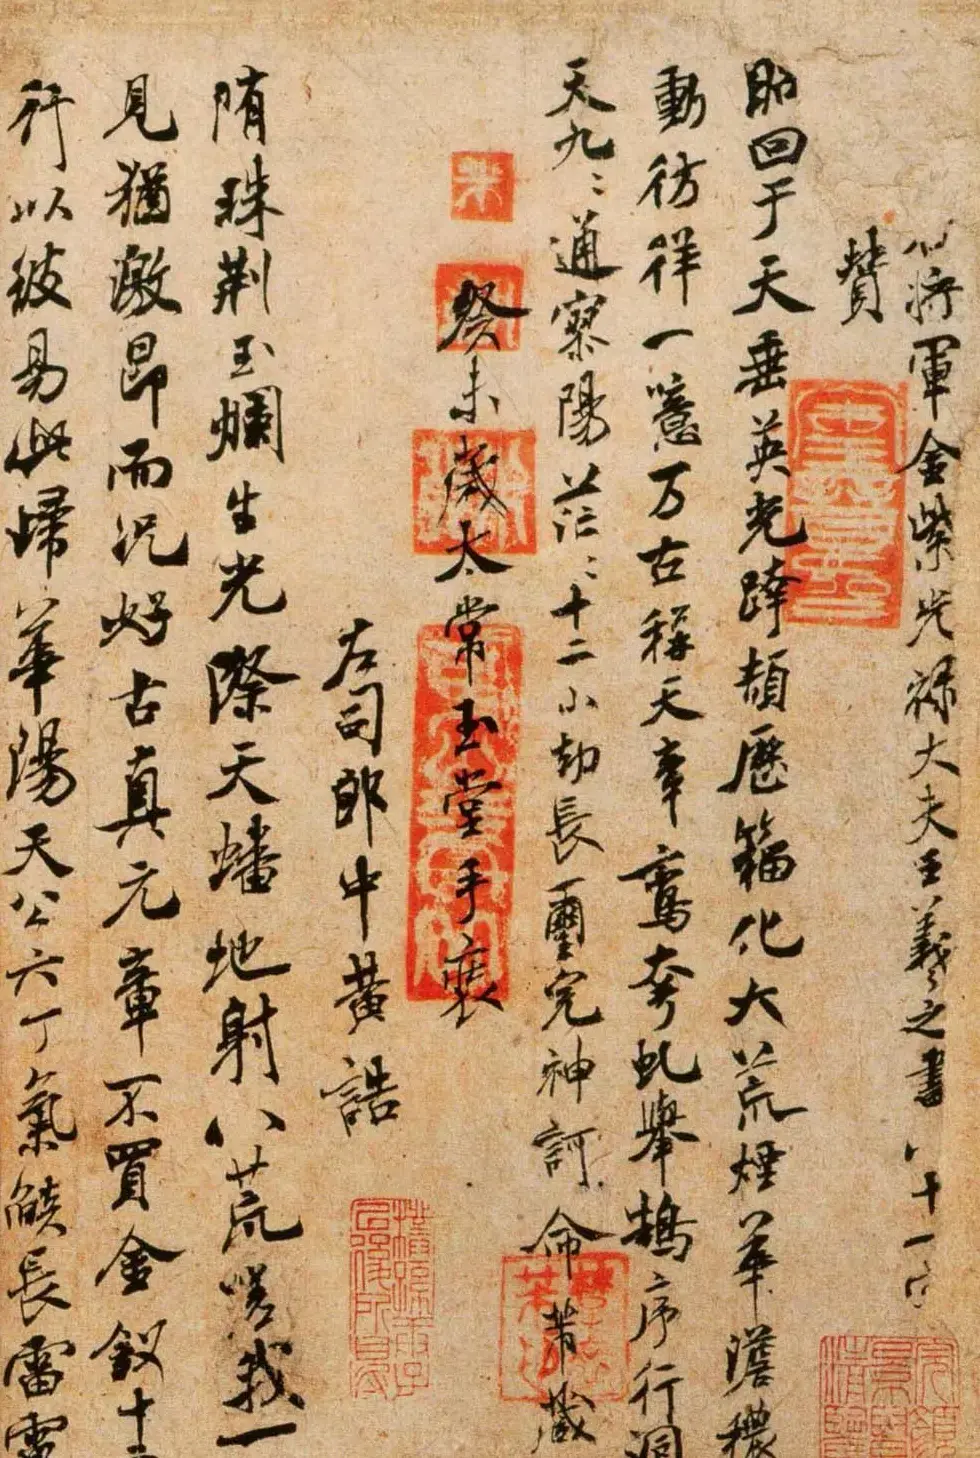 將軍金紫光祿大夫王羲之書八十一字
贊
昭回于天垂英光跨頡歷籀化大荒煙華澹穠
動彷徉一噫万古稱天章鸞奔虬舉鵠序行洞
天九〻通寥陽茫〻十二小劫長璽完神訶命芾藏
癸未歲太常玉堂手裝
左司郎中黃誥
隋珠荊玉爛生光際天蟠地射八荒嗟我一
見猶激昂而况好古真元章不買金釵十二
行以彼易此歸華陽天公六丁氣燄長雷電